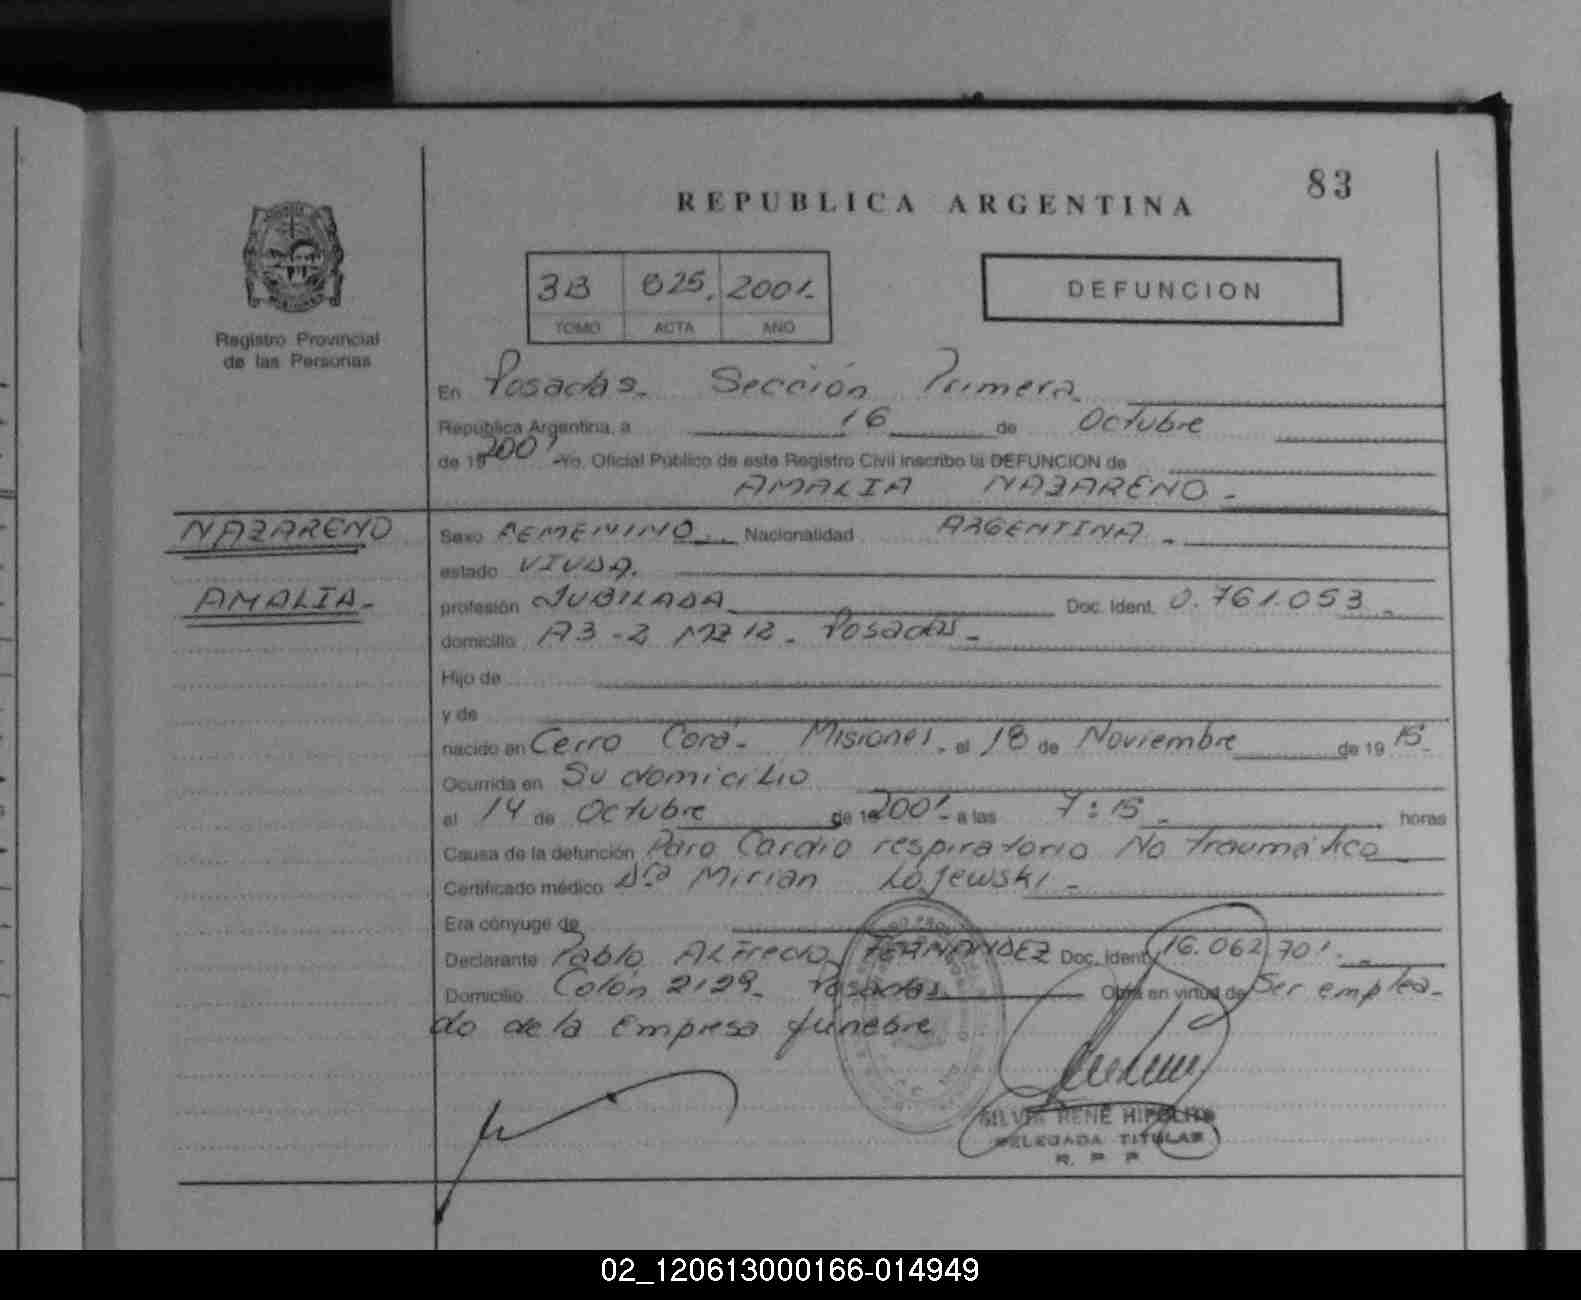 83
REPUBLICA ARGENTINA
3B 825. 2001.
TOMO ACTA AÑO
DEFUNCION
Registro Provincial
de las Personas
En Posadas. Sección Primera.
Republica Argentina, a 16 de Octubre
de 19 2001 -Yo, Oficial Público de este Registro Civil inscribo la DEFUNCION de
AMALIA NAZARENO.
NAZARENO
AMALIA.
Sexo FEMENINO. Nacionalidad ARGENTINA.
estado VIUDA.
profesión JUBILADA Doc. Ident. 0.761.053.
domicilio A3-2 MZ 12. Posadas.
Hijo de
y de
nacido en Cerro Corá. Misiones. el 18 de Noviembre de 19 15.
Ocurrida en Su domicilio
el 14 de Octubre de 19 2001. a las 7:15. horas
Causa de la defunción Paro Cardio respiratorio No traumático
Certificado médico Dra Mirian Lojewski.
Era cónyuge de
Declarante Pablo Alfredo FERNANDEZ Doc. Ident. 16.062.701.
Domicilio Colón 2129. Posadas. Obra en virtud de Ser emplea-
do de la Empresa fúnebre
SILVIA RENE HIPOLITO
DELEGADA TITULAR
R. P. P.
02_120613000166-014949